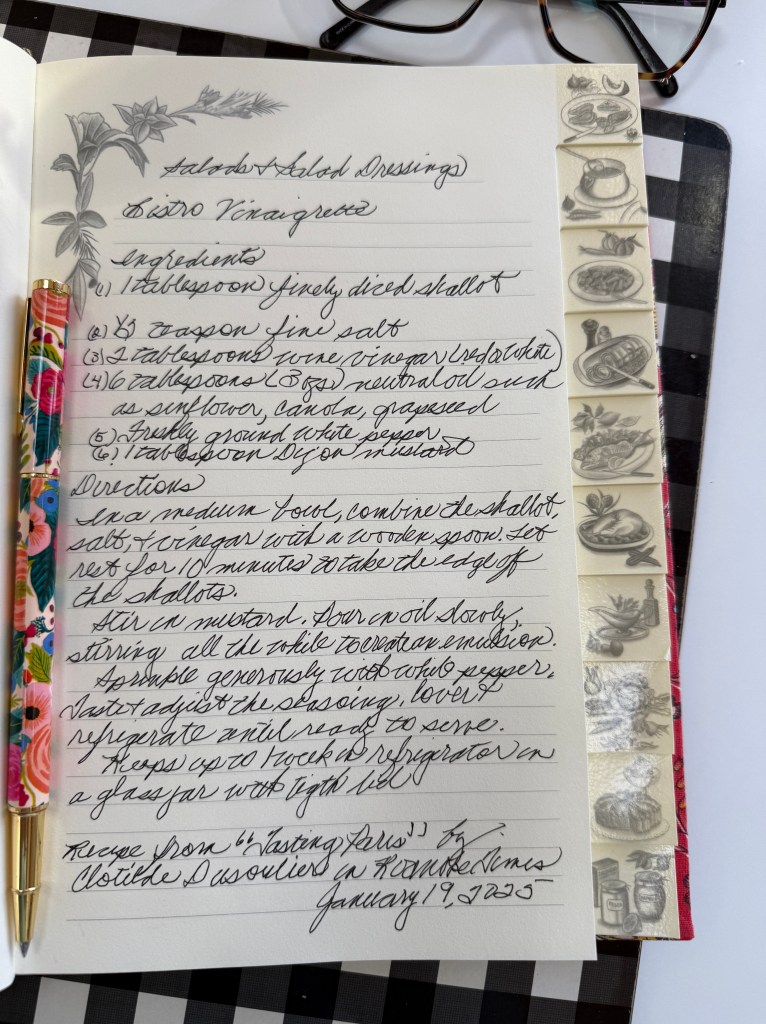 Salads & Salad Dressings
Bistro Vinaigrette
Ingredients
(1) 1 tablespoon finely diced shallot
(2) 1/3 teaspon fine salt
(3) 2 tablespoons wine vinegar (red or white)
(4) 6 tablespoons (3 ozs) neutral oil such
as sunflower, canola, grapeseed
(5) Freshly ground white pepper
(6) 1 tablespoon Dijon mustard
Directions
In a medium bowl, combine the shallot,
salt, & vinegar with a wooden spoon. Let
rest for 10 minutes to take the edge off
the shallots.
Stir in mustard. Pour in oil slowly,
stirring all the while to create an emulsion.
Sprinkle generously with white pepper.
Taste & adjust the seasoing. Cover &
refrigerate until ready to serve.
Keeps up to 1 week in refrigerator in
a glass jar with tigth lid
Recipe from "Tasting Paris" by
Clotilde Dusoulier in Roanoke Times
January 19, 2025